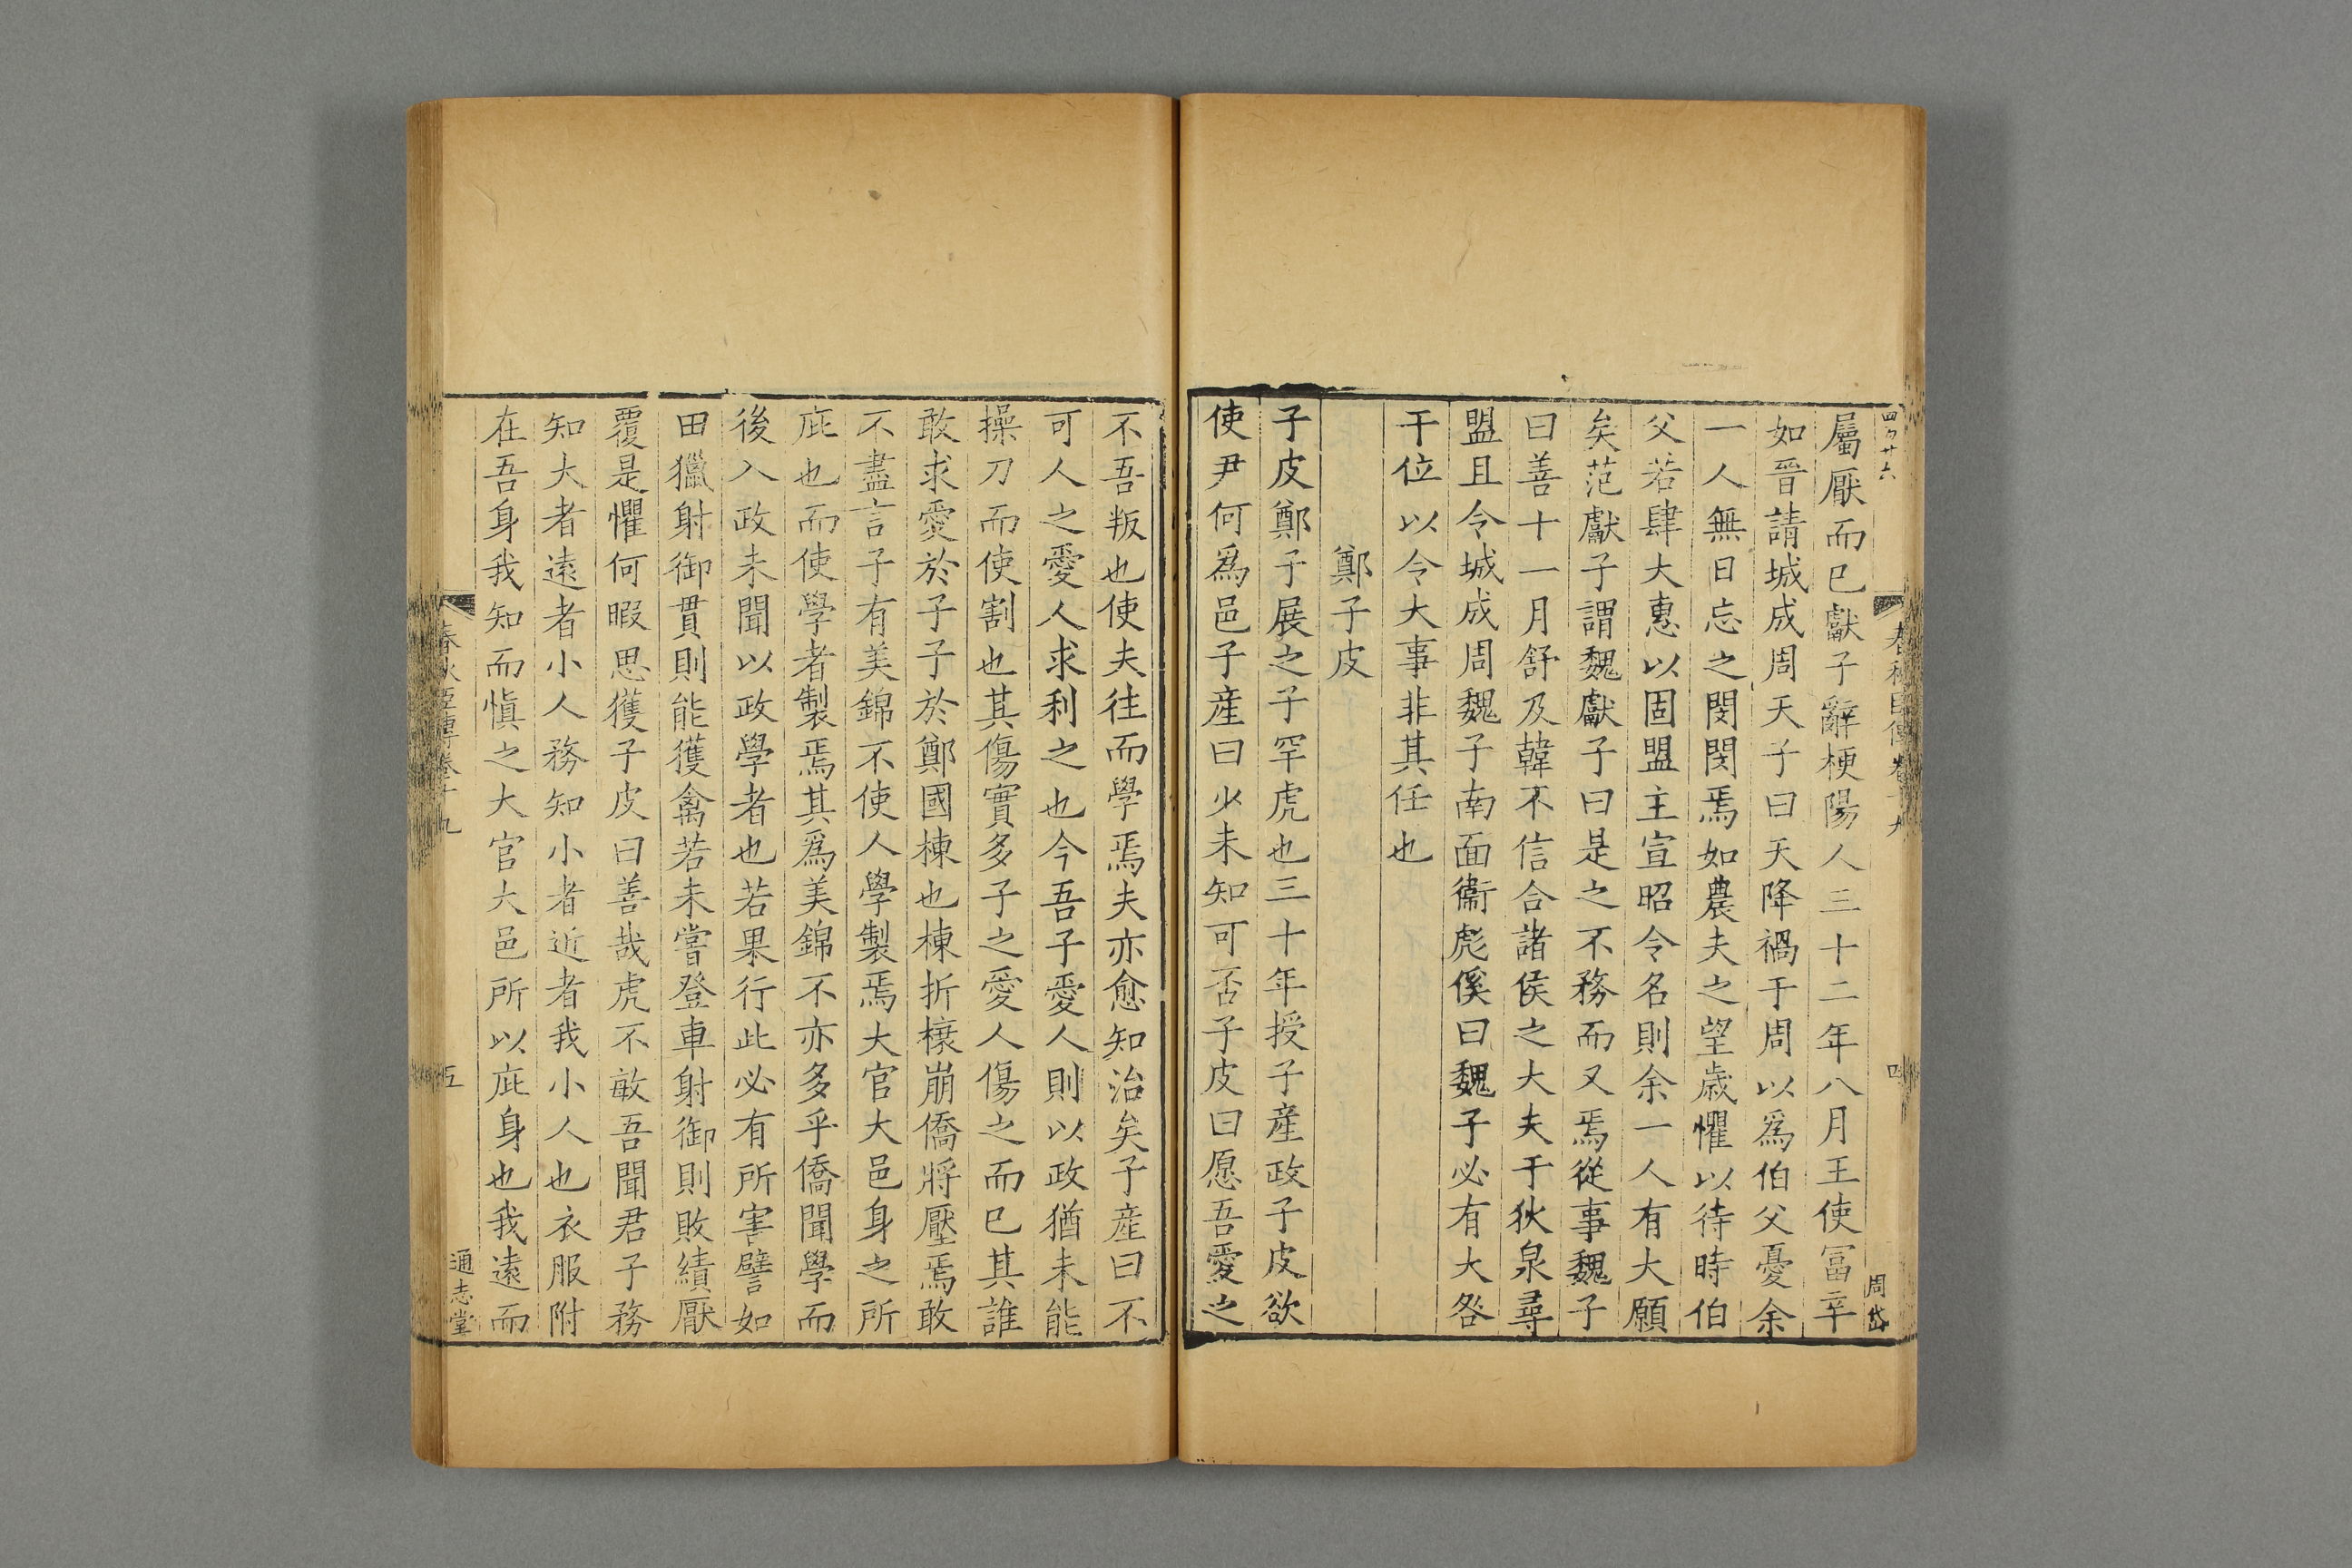 四百廿六
春秋臣傳卷十九
四
周岱
屬厭而已獻子辭梗陽人三十二年八月王使冨辛
如晉請城成周天子曰天降禍于周以爲伯父憂余
一人無日忘之閔閔焉如農夫之望歲懼以待時伯
父若肆大惠以固盟主宣昭令名則余一人有大願
矣范獻子謂魏獻子曰是之不務而又焉從事魏子
曰善十一月舒及韓不信合諸侯之大夫于狄泉尋
盟且令城成周魏子南面衞彪傒曰魏子必有大咎
干位以令大事非其任也
鄭子皮
子皮鄭子展之子罕虎也三十年授子産政子皮欲
使尹何爲邑子産曰少未知可否子皮曰愿吾愛之
不吾叛也使夫往而學焉夫亦愈知治矣子産曰不
可人之愛人求利之也今吾子愛人則以政猶未能
操刀而使割也其傷實多子之愛人傷之而已其誰
敢求愛於子子於鄭國棟也棟折榱崩僑將壓焉敢
不盡言子有美錦不使人學製焉大官大邑身之所
庇也而使學者製焉其爲美錦不亦多乎僑聞學而
後入政未聞以政學者也若果行此必有所害譬如
田獵射御貫則能獲禽若未嘗登車射御則敗績厭
覆是懼何暇思獲子皮曰善哉虎不敏吾聞君子務
知大者遠者小人務知小者近者我小人也衣服附
在吾身我知而愼之大官大邑所以庇身也我遠而
春秋臣傳卷十九
五
通志堂